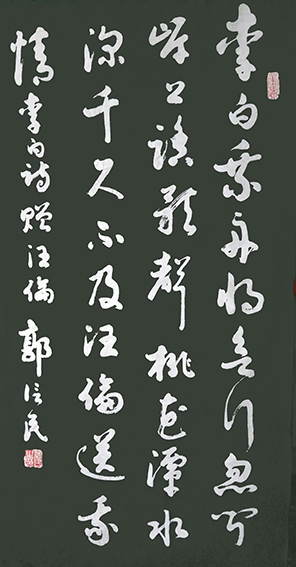 李白乘舟将欲行忽闻
岸上踏歌声桃花潭水
深千尺不及汪倫送我
情李白詩贈汪倫郭信民